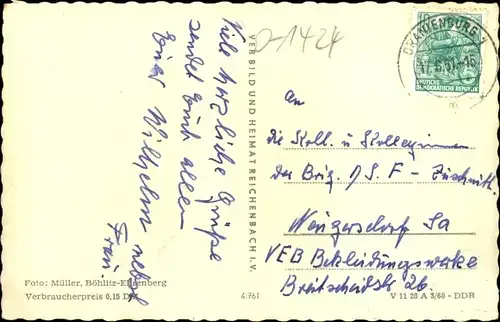 Viele herzliche Grüße
sendet Euch allen
Euer Wilhelm nebst
Frau.
D-1424
VEB BILD UND HEIMAT REICHENBACH I. V.
10
DEUTSCHE
DEMOKRATISCHE REPUBLIK
ORANIENBURG 1
An
die Koll. u Kolleginnen
der Brig. DSF - Zuschnitt.
Neugersdorf Sa
VEB Bekleidungswerke
Breitscheidstr 26.
Foto: Müller, Böhlitz-Ehrenberg
Verbraucherpreis 0,15 DM
4/761
V 11 28 A 3/60 - DDR